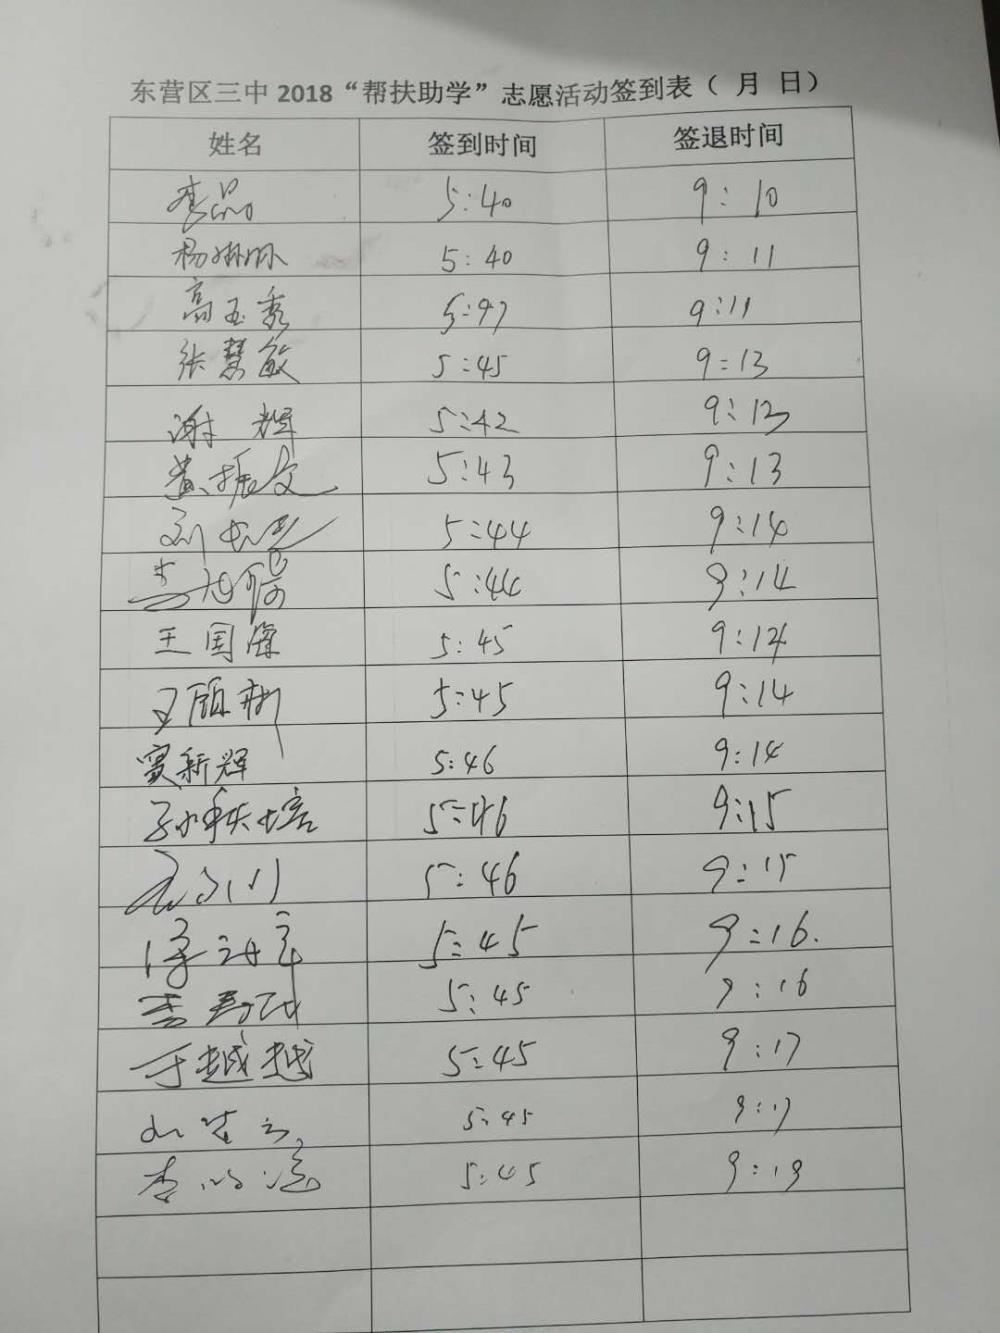 东营区三中2018“帮扶助学”志愿活动签到表（ 月 日）
姓名 签到时间 签退时间
李品 5:40 9:10
杨 5:40 9:11
高玉秀 9:11
张慧敏 5:45 9:13
谢辉 5:42 9:13
黄振文 5:43 9:13
刘 5:44 9:14
5:44 9:14
王国峰 5:45 9:14
5:45 9:14
窦新辉 5:46 9:14
孙秩培 5:46 9:15
5:46 9:15
5:45 9:16.
李 5:45 9:16
于越越 5:45 9:17
5:45 9:17
李 5:45 9:19